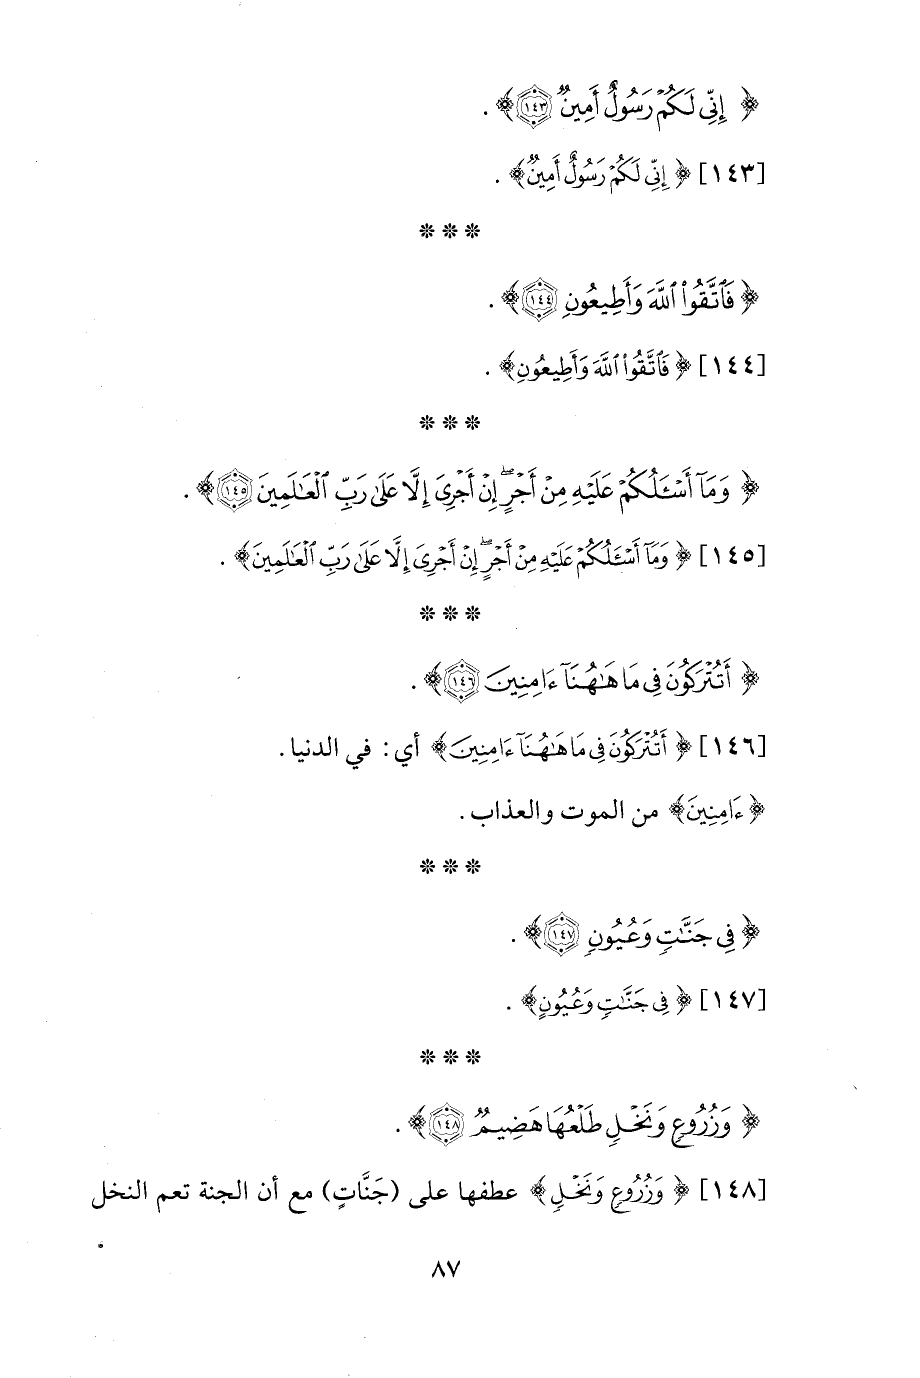 ﴿ إِنِّي لَكُمْ رَسُولٌ أَمِينٌ ١٤٣ ﴾ .
[١٤٣] ﴿ إِنِّي لَكُمْ رَسُولٌ أَمِينٌ﴾ .
* * *
﴿ فَٱتَّقُوا۟ ٱللَّهَ وَأَطِيعُونِ ١٤٤ ﴾ .
[١٤٤] ﴿ فَٱتَّقُوا۟ ٱللَّهَ وَأَطِيعُونِ﴾ .
* * *
﴿ وَمَآ أَسْـَٔلُكُمْ عَلَيْهِ مِنْ أَجْرٍ ۖ إِنْ أَجْرِىَ إِلَّا عَلَىٰ رَبِّ ٱلْعَـٰلَمِينَ ١٤٥ ﴾ .
[١٤٥] ﴿ وَمَآ أَسْـَٔلُكُمْ عَلَيْهِ مِنْ أَجْرٍ ۖ إِنْ أَجْرِىَ إِلَّا عَلَىٰ رَبِّ ٱلْعَـٰلَمِينَ﴾ .
* * *
﴿ أَتُتْرَكُونَ فِى مَا هَـٰهُنَآ ءَامِنِينَ ١٤٦ ﴾ .
[١٤٦] ﴿ أَتُتْرَكُونَ فِى مَا هَـٰهُنَآ ءَامِنِينَ﴾ أي: في الدنيا.
﴿ءَامِنِينَ﴾ من الموت والعذاب.
* * *
﴿ فِى جَنَّـٰتٍ وَعُيُونٍ ١٤٧ ﴾ .
[١٤٧] ﴿ فِى جَنَّـٰتٍ وَعُيُونٍ﴾ .
* * *
﴿ وَزُرُوعٍ وَنَخْلٍ طَلْعُهَا هَضِيمٌ ١٤٨ ﴾ .
[١٤٨] ﴿ وَزُرُوعٍ وَنَخْلٍ﴾ عطفها على (جَنَّاتٍ) مع أن الجنة تعم النخل
٨٧